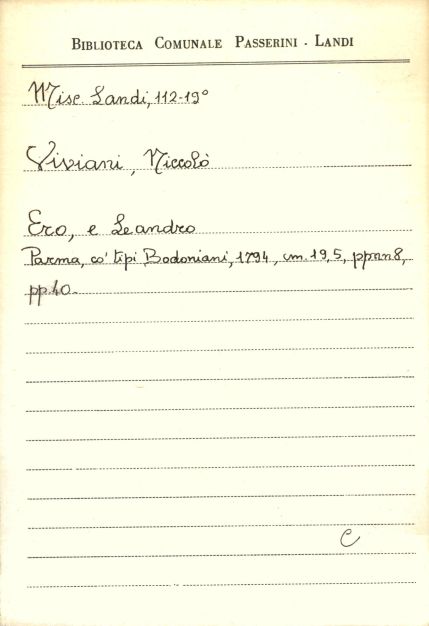 BIBLIOTECA COMUNALE PASSERINI - LANDI
Misc. Landi, 112-19°
Viviani, Niccolò
Ero, e Leandro
Parma, co' tipi Bodoniani, 1794, cm. 19,5, pp.nn 8,
pp. 40.
C